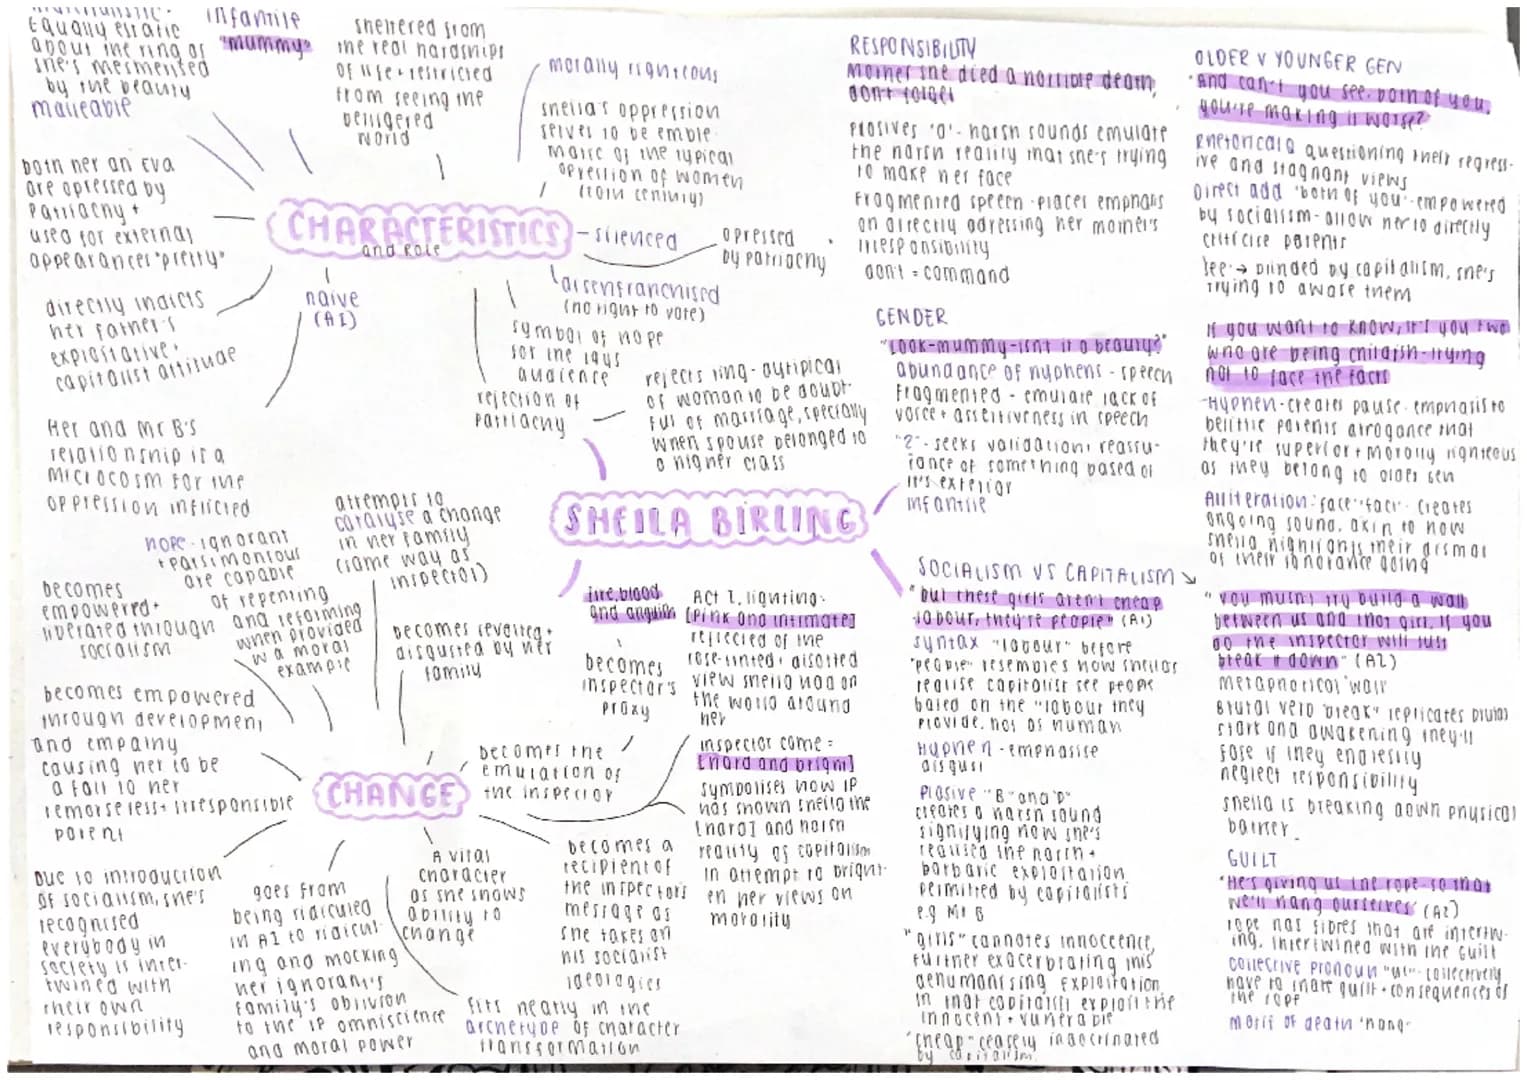 Equally estatic
about the ring as
she's mesmerised
by the beauty
maleable
infantile
"mummy"
sheltered from
the real hardships
of life + restricted
from seeing the
belligered
world
morally righteous
sheila's oppression
serves to be emble-
matic of the typical
opression of women
(20th century)
both her an Eva
are opressed by
Patriachy +
used for external
appearances "pretty"
CHARACTERISTICS
and Role
silenced
opressed
by patriachy
disenfranchised
(no right to vote)
naive
(A1)
directly indicts
her father's
exploitative +
capitalist attitude
symbol of hope
for the 1945
audience
rejection of
Patriachy
rejects ring - atypical
of woman to be doubt-
ful of marriage, specially
when spouse belonged to
a higher class
Her and Mr B's
relationship is a
microcosm for the
oppression inflicted
SHEILA BIRLING
hope - ignorant
+ parsimonious
are capable
of repenting
and reforming
when provided
w a moral
example
attempts to
catalyse a change
in her family
(same way as
inspector)
becomes
empowered +
liberated through
socialism
becomes revolted +
disgusted by her
family
becomes empowered
through development
and empathy
causing her to be
a foil to her
remorseless + irresponsible
parent
CHANGE
becomes the
emulation of
the inspector
fire, blood
and anguish
becomes
inspector's
proxy
ACT I, lighting.
[pink and intimate]
reflected of the
rose-tinted + distorted
view sheila had on
the world around
her
inspector come =
[hard and bright]
symbolises how IP
has shown sheila the
[hard] and harsh
reality of capitalism
in attempt to bright-
en her views on
morality
Due to introduction
of socialism, she's
recognised
everybody in
society is inter-
twined with
their own
responsibility
goes from
being ridiculed
in A1 to ridicul-
ing and mocking
her ignorant's
family's oblivion
to the IP omniscience
and moral power
A vital
character
as she shows
ability to
change
fits neatly in the
archetype of character
transformation
becomes a
recipient of
the inspector's
message as
she takes on
his socialist
ideologies
RESPONSIBILITY
Mother she died a horrible death,
don't forget
Plosives 'd' - harsh sounds emulate
the harsh reality that she's trying
to make her face
Fragmented speech - places emphasis
on directly adressing her mother's
irresponsibility
don't = command
GENDER
"Look-mummy-isn't it a beauty?"
abundance of hyphens - speech
fragmented - emulate lack of
voice + assertiveness in speech
"?" - seeks validation + reassu-
rance of something based of
it's exterior
infantile
SOCIALISM VS CAPITALISM
"but these girls aren't cheap
labour, they're people" (A1)
syntax "labour" before
"people" resembles how sheilas
realise capitalist see people
based on the "labour they
provide, not as human
Hyphen - emphasise
disgust
Plosive "B" and "P"
creates a harsh sound
signifying how she's
realised the harsh +
barbaric exploitation
permitted by capitalists
e.g Mr B
"girls" connotes innoccence,
further exacerbrating this
dehumanising exploitation
in that capitalist exploit the
innocent + vunerable
"cheap" indoctrinated
by capitalism.
OLDER V YOUNGER GEN
"And can't you see, both of you,
you're making it worse?
Rhetorical Q questioning their regress-
ive and stagnant views
Direct add 'both of you' - empowered
by socialism - allow her to directly
criticise parents
see → blinded by capitalism, she's
trying to aware them
If you want to know, it's you two
who are being childish - trying
not to face the facts
Hyphen - creates pause - emphasis to
belittle parents arrogance that
they're superior + morally righteous
as they belong to older gen
Alliteration: "face" "fact" - creates
ongoing sound, akin to how
sheila highlights their dismal
of their ignorance going
"you musn't try build a wall
between us and that girl, if you
do the inspector will just
break it down" (A2)
metaphorical 'wall'
Brutal verb "break" replicates brutal
start and awakening they'll
face if they endlessly
neglect responsibility
sheila is breaking down physical
barrier
GUILT
"He's giving us the rope - so that
we'll hang ourselves" (A2)
rope has fibres that are intertw-
ing, intertwined with the guilt
collective pronoun "us" - collectively
have to share guilt + consequences of
the rope
motif of death 'hang'